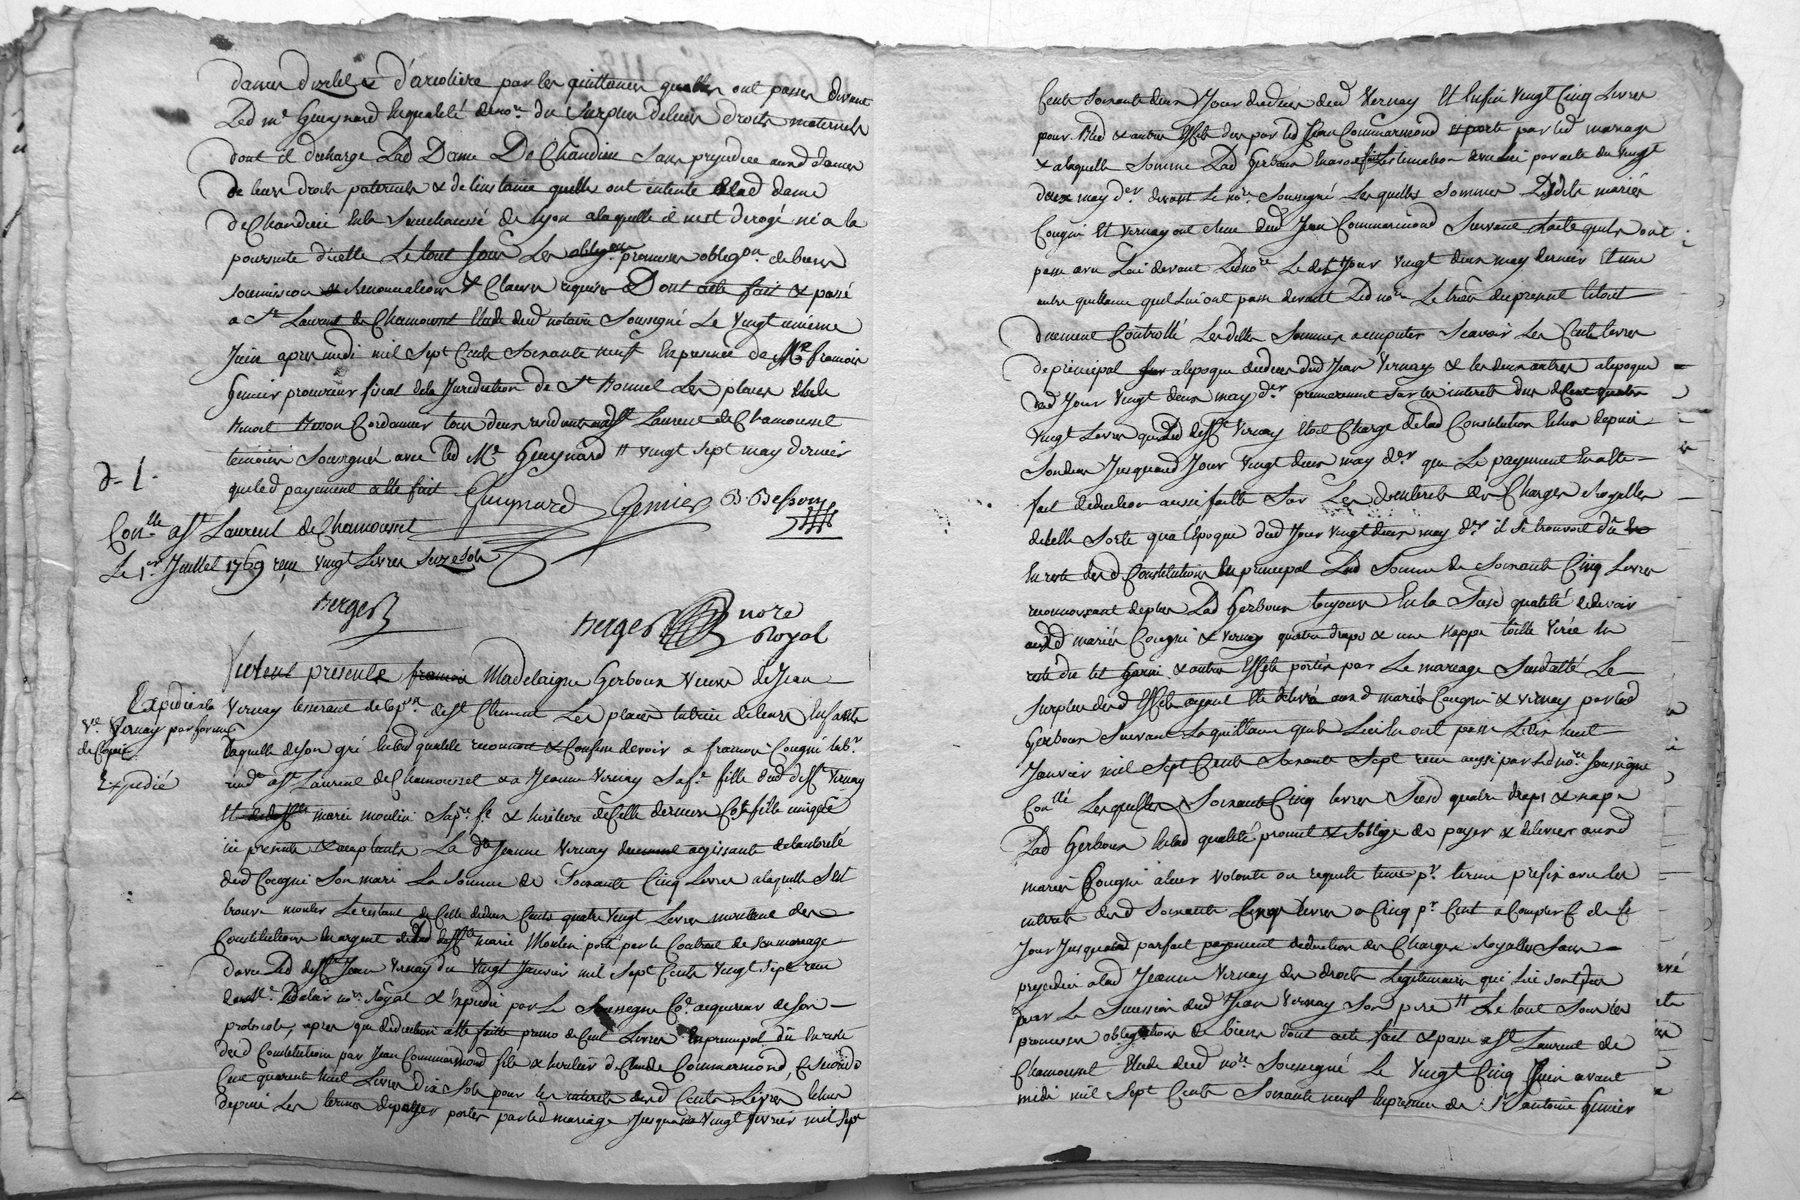 d'arcoliere par les quittances quelles ont passé devant
Led me Guynard en qualité de nore du surplus de leurs droits maternels
dont il decharge Lad Dame De Chandieu sans prejudice auxd dames
de leurs droits paternels & de l'instance quelles ont intenté alad dame
de Chandieu en la Senechaussé de Lyon alaquelle il n'est derogé né a la
poursuite d'icelle Le tout sous Les obligons promesses obligon de biens
soumission & Renonciations & Clauses requises Dont acte fait & passé
a St Laurent de Chamousset Etude dud notaire Soussigné Le vingt unieme
Juin apres midi mil Sept Cents Soixante neuf En presence de Mre francois
Genier procureur fiscal dela Jurediction de St Bonnel Les places & de
Benoit Besson Cordonnier tous deux residants aud St Laurent de Chamousset
temoins Soussignés avec Led Me Guynard // vingt sept may dernier
queled payement a été fait Guynard Genier B. Besson
d- 1.
Conllé a St Laurent de Chamousset
Le 1er Juillet 1769 reçu vingt Livres Seize Sols
Berger
Berger nore
Royal
furent presents Madelaigne Gerboux veuve de Jean
Expediés la
vve Vernay par forme
de Copie
Expedié
Vernay de St Clement Les places tutrice de leurs Enfants
Laquelle de son gré en lad qualité reconnoit & Confesse devoir a francois Cougni labr
rindt a St Laurent de Chamousset & a Jeanne Vernay Sa fe fille dud defft Vernay
Et marie moulin Sa pre fe & heritiere de Celle derniere Ce fille unique
ici presents & acceptants La de Jeanne Vernay agissante de lautorité
dud Cougni Son mari La Somme de Soixante Cinq Livres a laquelle S'est
trouvé monter Le restant de Celle de deux Cents quatre vingt Livres montant des
Constitutions en argent delad deffte marie Moulin porté par le Contrat de Son mariage
d'avec Led defft Jean Vernay du vingt Janvier mil Sept Cents vingt Sept reçu
nore Royal & Expedié par Le Soussigné Ce acquereur de Son
protocole, apres que deduction a été faite primo de Cent Livres En principal dû En reste
desd Constitutions par Jean Commarmond fils & heritier de Claude Commarmond, Secundo
Cent quarente huit Livres dix Sols pour les interets desd Cents Livres Echus
depuis Les termes d'epoques portés parled mariage Jusquau vingt fevrier mil Sept
Cents Soixante deux Jour du deces dud Vernay Et Enfin vingt Cinq Livres
pour & autres Effets dus par led Jean Commarmond & porté par led mariage
& alaquelle Somme Lad Gerboux En a fait estimation avec lui par acte du vingt
deux may der devant Le nore Soussigné Lesquelles Sommes Lesdits mariés
Cougni Et Vernay ont reçues dud Jean Commarmond Suivant l'acte quils ont
passé avec Lui devant Led nore Led Jour vingt deux may dernier Et une
autre quittance quil Lui ont passé devant Led nore Le treize du present letout
duement Controllé Lesdittes Sommes a imputer Scavoir Les Cents livres
de principal a l'epoque du deces dud Jean Vernay & les deux autres alepoque
dud Jour vingt deux may der premierement Sur les interets dus de Cent quatre
vingt Livres que Led defft Vernay Etoit Chargé delad Constitution Echus depuis
Son deces Jusquaud Jour vingt deux may der que Le payement En a été
fait deduction aussi faite Sur Les d interets des Charges Royalles
de telle Sorte qua l'epoque dud Jour vingt deux may der il Se trouvoit dû
En reste desd Constitutions En principal Lad Somme de Soixante Cinq Livres
reconnoissant de plus Lad Gerboux toujours En la Susd qualité de devoir
auxd mariés Cougni & Vernay quatre draps & une Nappe toille Virée En
reste du lit Garni & autres Effets portés par Le mariage Susdatté Le
Surplus desd Effets ayant Eté delivré auxd mariés Cougni & Vernay par lad
Gerboux Suivant La quittance quils Lui En ont passé Le dix huit
Janvier mil Sept Cents Soixante Sept reçue aussi par Led nore Soussigné
Conllé Lesquelles Soixante Cinq livres Susd quatre draps & nape
Lad Gerboux En lad qualité promet & S'oblige de payer & delivrer auxd
mariés Cougni a leur volonté ou requete Sans pr terme prefix avec les
interets desd Soixante Cinq Livres a Cinq pr Cent a Compter de Ce
Jour Jusquaud parfait payement deduction des Charges Royalles Sans
prejudice alad Jeanne Vernay des droits Legitimaires qui lui sont dus
par La Succession dud Jean Vernay Son pere // Le tout Sous les
promesses obligations de biens dont acte fait & passé a St Laurent de
Chamousset Etude dud nore Soussigné Le vingt Cinq Juin avant
midi mil Sept Cents Soixante neuf En presence de Sr antoine Genier